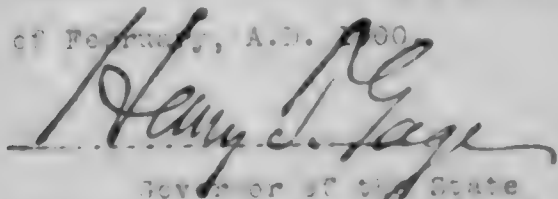 of February, A.D. 1900
Henry T. Gage
Governor of the State